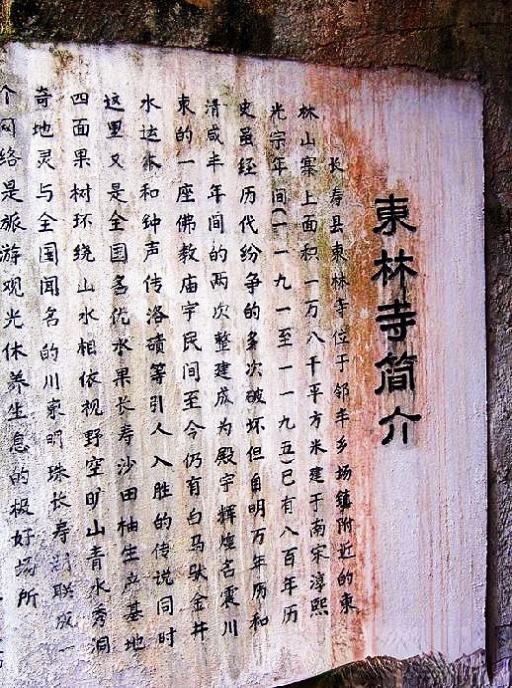 東林寺簡介
长寿县東林寺位于邻丰乡场镇附近的東
林山寨上面积一万八千平方米建于南宋淳熙
光宗年间(一一九一至一一九五)已有八百年历
史虽经历代纷争的多次破坏但自明万年历和
清咸丰年间的两次整建成为殿宇辉煌名震川
東的一座佛教庙宇民间至今仍有白马驮金井
水达和钟声传洛碛等引人入胜的传说同时
这里又是全国名优水果长寿沙田柚生产基地
四面果树环绕山水相依视野空旷山青水秀洞
奇地灵与全国闻名的川東明珠长寿湖联成一
个网络是旅游观光休养生息的极好场所